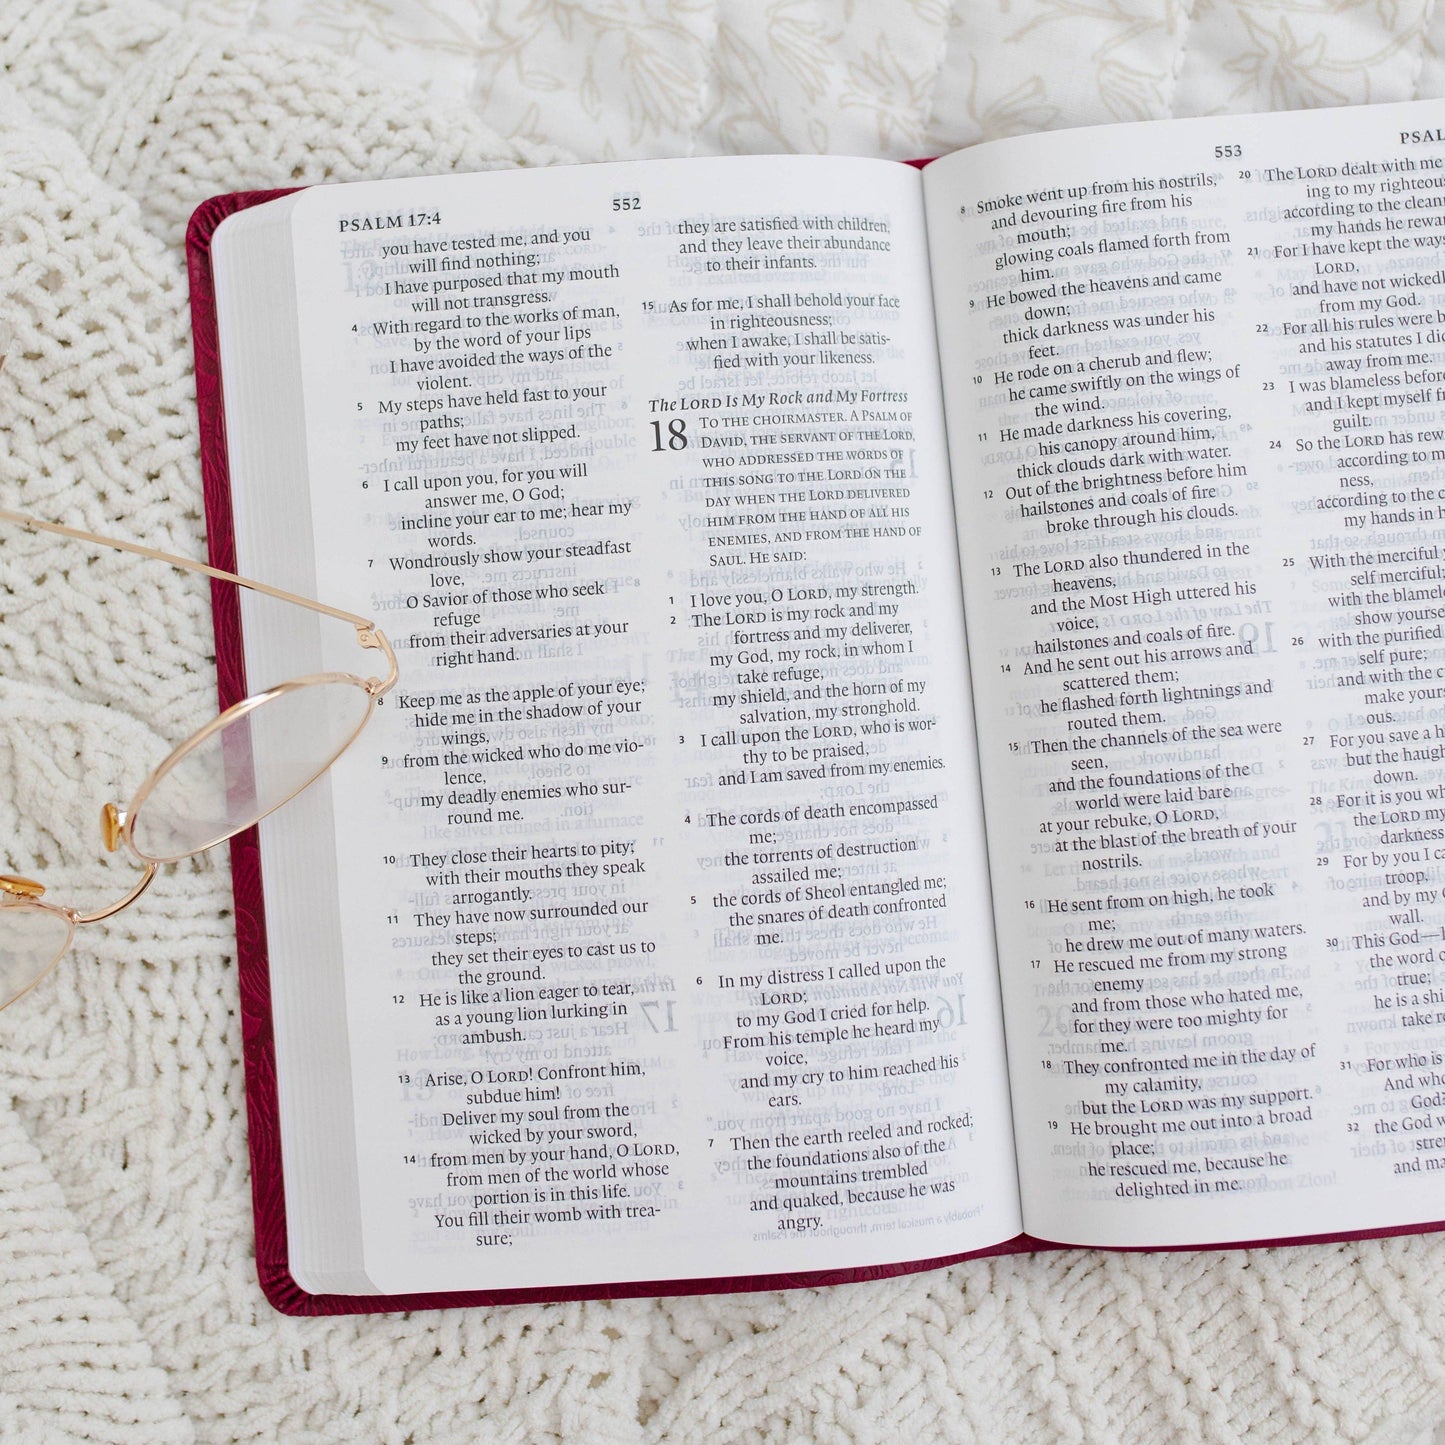 PSALM 17:4
552
you have tested me, and you
will find nothing;
I have purposed that my mouth
will not transgress.
4 With regard to the works of man,
by the word of your lips
I have avoided the ways of the
violent.
5 My steps have held fast to your
paths;
my feet have not slipped.
6 I call upon you, for you will
answer me, O God;
incline your ear to me; hear my
words.
7 Wondrously show your steadfast
love,
O Savior of those who seek
refuge
from their adversaries at your
right hand.
8 Keep me as the apple of your eye;
hide me in the shadow of your
wings,
9 from the wicked who do me vio-
lence,
my deadly enemies who sur-
round me.
10 They close their hearts to pity;
with their mouths they speak
arrogantly.
11 They have now surrounded our
steps;
they set their eyes to cast us to
the ground.
12 He is like a lion eager to tear,
as a young lion lurking in
ambush.
13 Arise, O LORD! Confront him,
subdue him!
Deliver my soul from the
wicked by your sword,
14 from men by your hand, O LORD,
from men of the world whose
portion is in this life.
You fill their womb with trea-
sure;
they are satisfied with children,
and they leave their abundance
to their infants.
15 As for me, I shall behold your face
in righteousness;
when I awake, I shall be satis-
fied with your likeness.
The LORD Is My Rock and My Fortress
18 TO THE CHOIRMASTER. A PSALM OF
DAVID, THE SERVANT OF THE LORD,
WHO ADDRESSED THE WORDS OF
THIS SONG TO THE LORD ON THE
DAY WHEN THE LORD DELIVERED
HIM FROM THE HAND OF ALL HIS
ENEMIES, AND FROM THE HAND OF
SAUL. HE SAID:
1 I love you, O LORD, my strength.
2 The LORD is my rock and my
fortress and my deliverer,
my God, my rock, in whom I
take refuge,
my shield, and the horn of my
salvation, my stronghold.
3 I call upon the LORD, who is wor-
thy to be praised,
and I am saved from my enemies.
4 The cords of death encompassed
me;
the torrents of destruction
assailed me;
5 the cords of Sheol entangled me;
the snares of death confronted
me.
6 In my distress I called upon the
LORD;
to my God I cried for help.
From his temple he heard my
voice,
and my cry to him reached his
ears.
7 Then the earth reeled and rocked;
the foundations also of the
mountains trembled
and quaked, because he was
angry.
553
8 Smoke went up from his nostrils,
and devouring fire from his
mouth;
glowing coals flamed forth from
him.
9 He bowed the heavens and came
down;
thick darkness was under his
feet.
10 He rode on a cherub and flew;
he came swiftly on the wings of
the wind.
11 He made darkness his covering,
his canopy around him,
thick clouds dark with water.
12 Out of the brightness before him
hailstones and coals of fire
broke through his clouds.
13 The LORD also thundered in the
heavens,
and the Most High uttered his
voice,
hailstones and coals of fire.
14 And he sent out his arrows and
scattered them;
he flashed forth lightnings and
routed them.
15 Then the channels of the sea were
seen,
and the foundations of the
world were laid bare
at your rebuke, O LORD,
at the blast of the breath of your
nostrils.
16 He sent from on high, he took
me;
he drew me out of many waters.
17 He rescued me from my strong
enemy
and from those who hated me,
for they were too mighty for
me.
18 They confronted me in the day of
my calamity,
but the LORD was my support.
19 He brought me out into a broad
place;
he rescued me, because he
delighted in me.
20 The LORD dealt with me
ing to my
according to the
my hands he
21 For I have kept the ways
LORD,
and have not wickedly
from my God.
22 For all his rules were
and his statutes I
away from me.
23 I was blameless before
and I kept myself
guilt.
24 So the LORD has
according to
ness,
according to the
my hands in
25 With the merciful
self merciful;
with the
show
26 with the purified
self pure;
and with the
make
ous.
27 For you save a
but the
down.
28 For it is you
the LORD my
darkness
29 For by you I
troop,
and by my
wall.
30 This God—
the word
true;
he is a
take
31 For who is
And
God?
32 the God
and